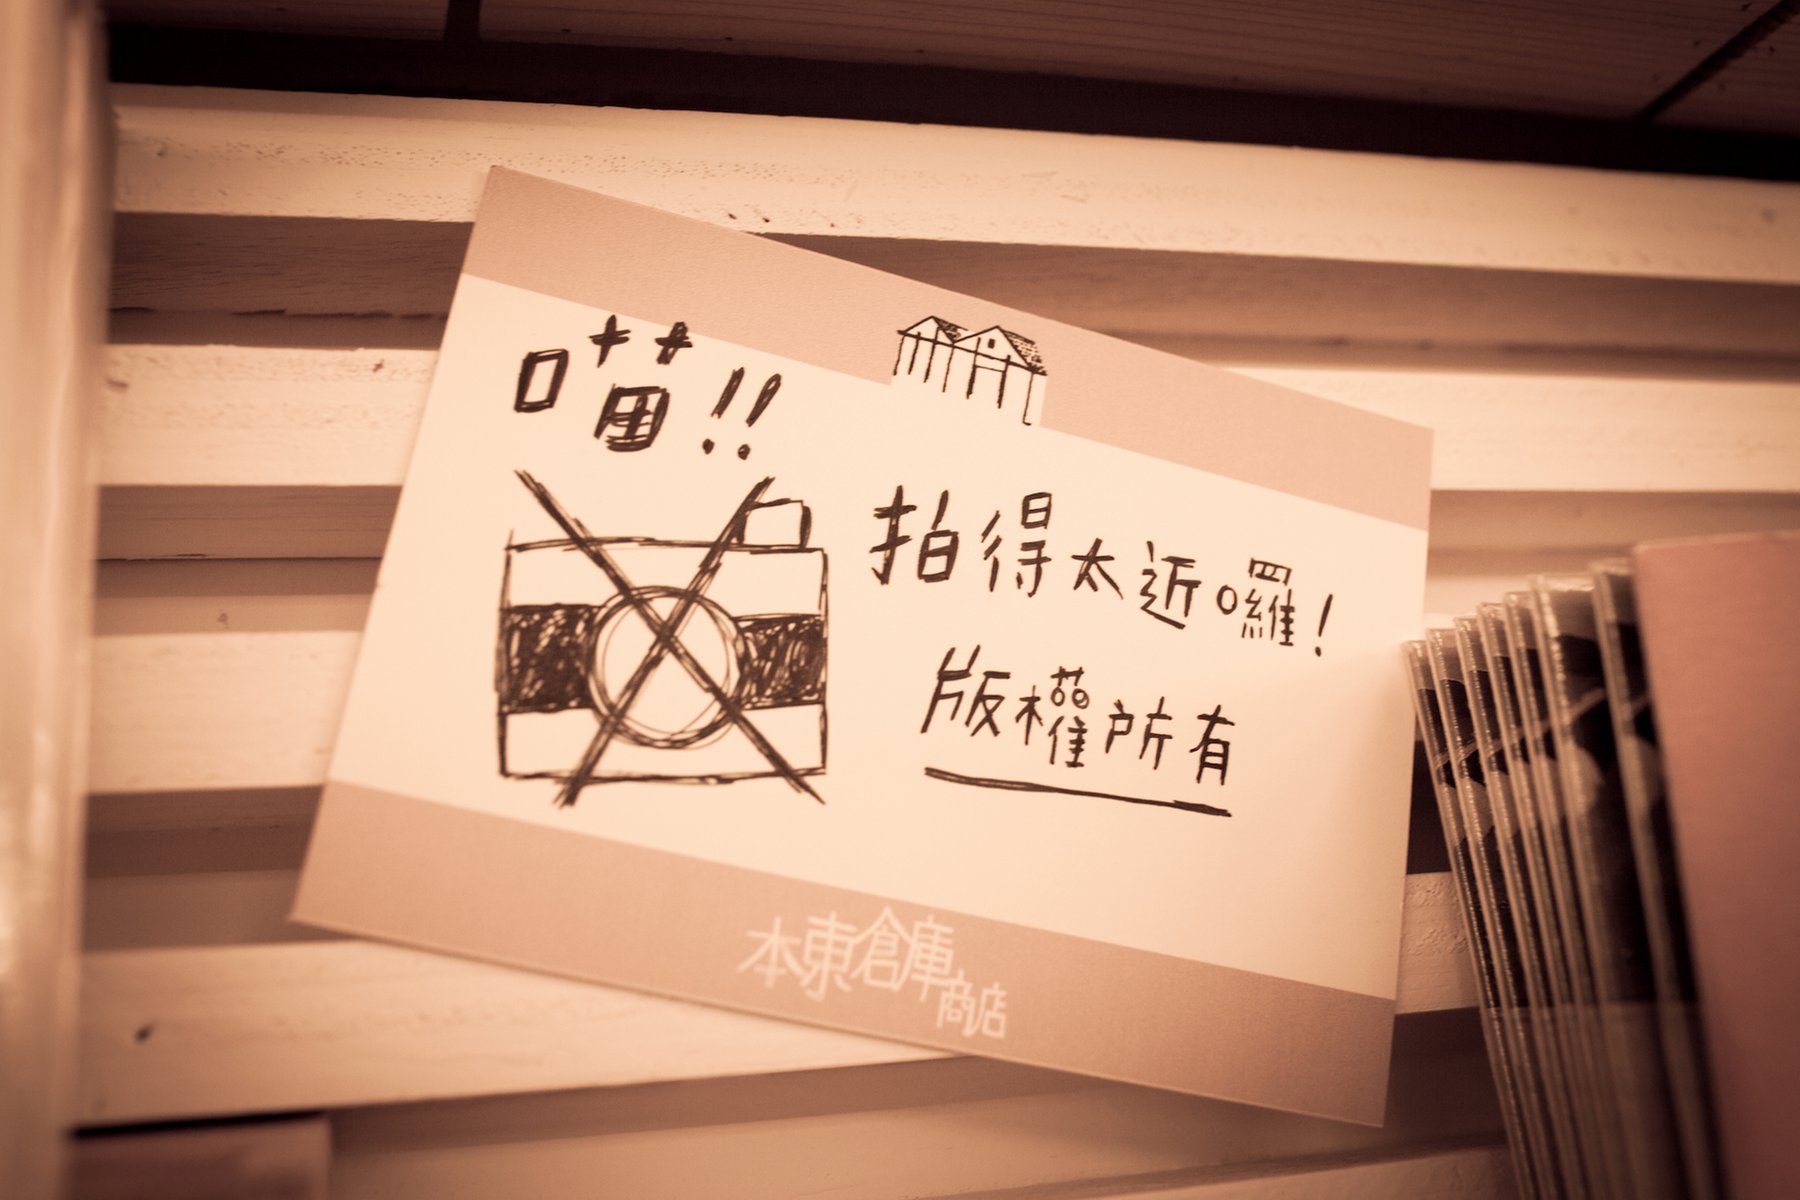 喵!!
拍得太近囉!
版權所有
本東倉庫商店